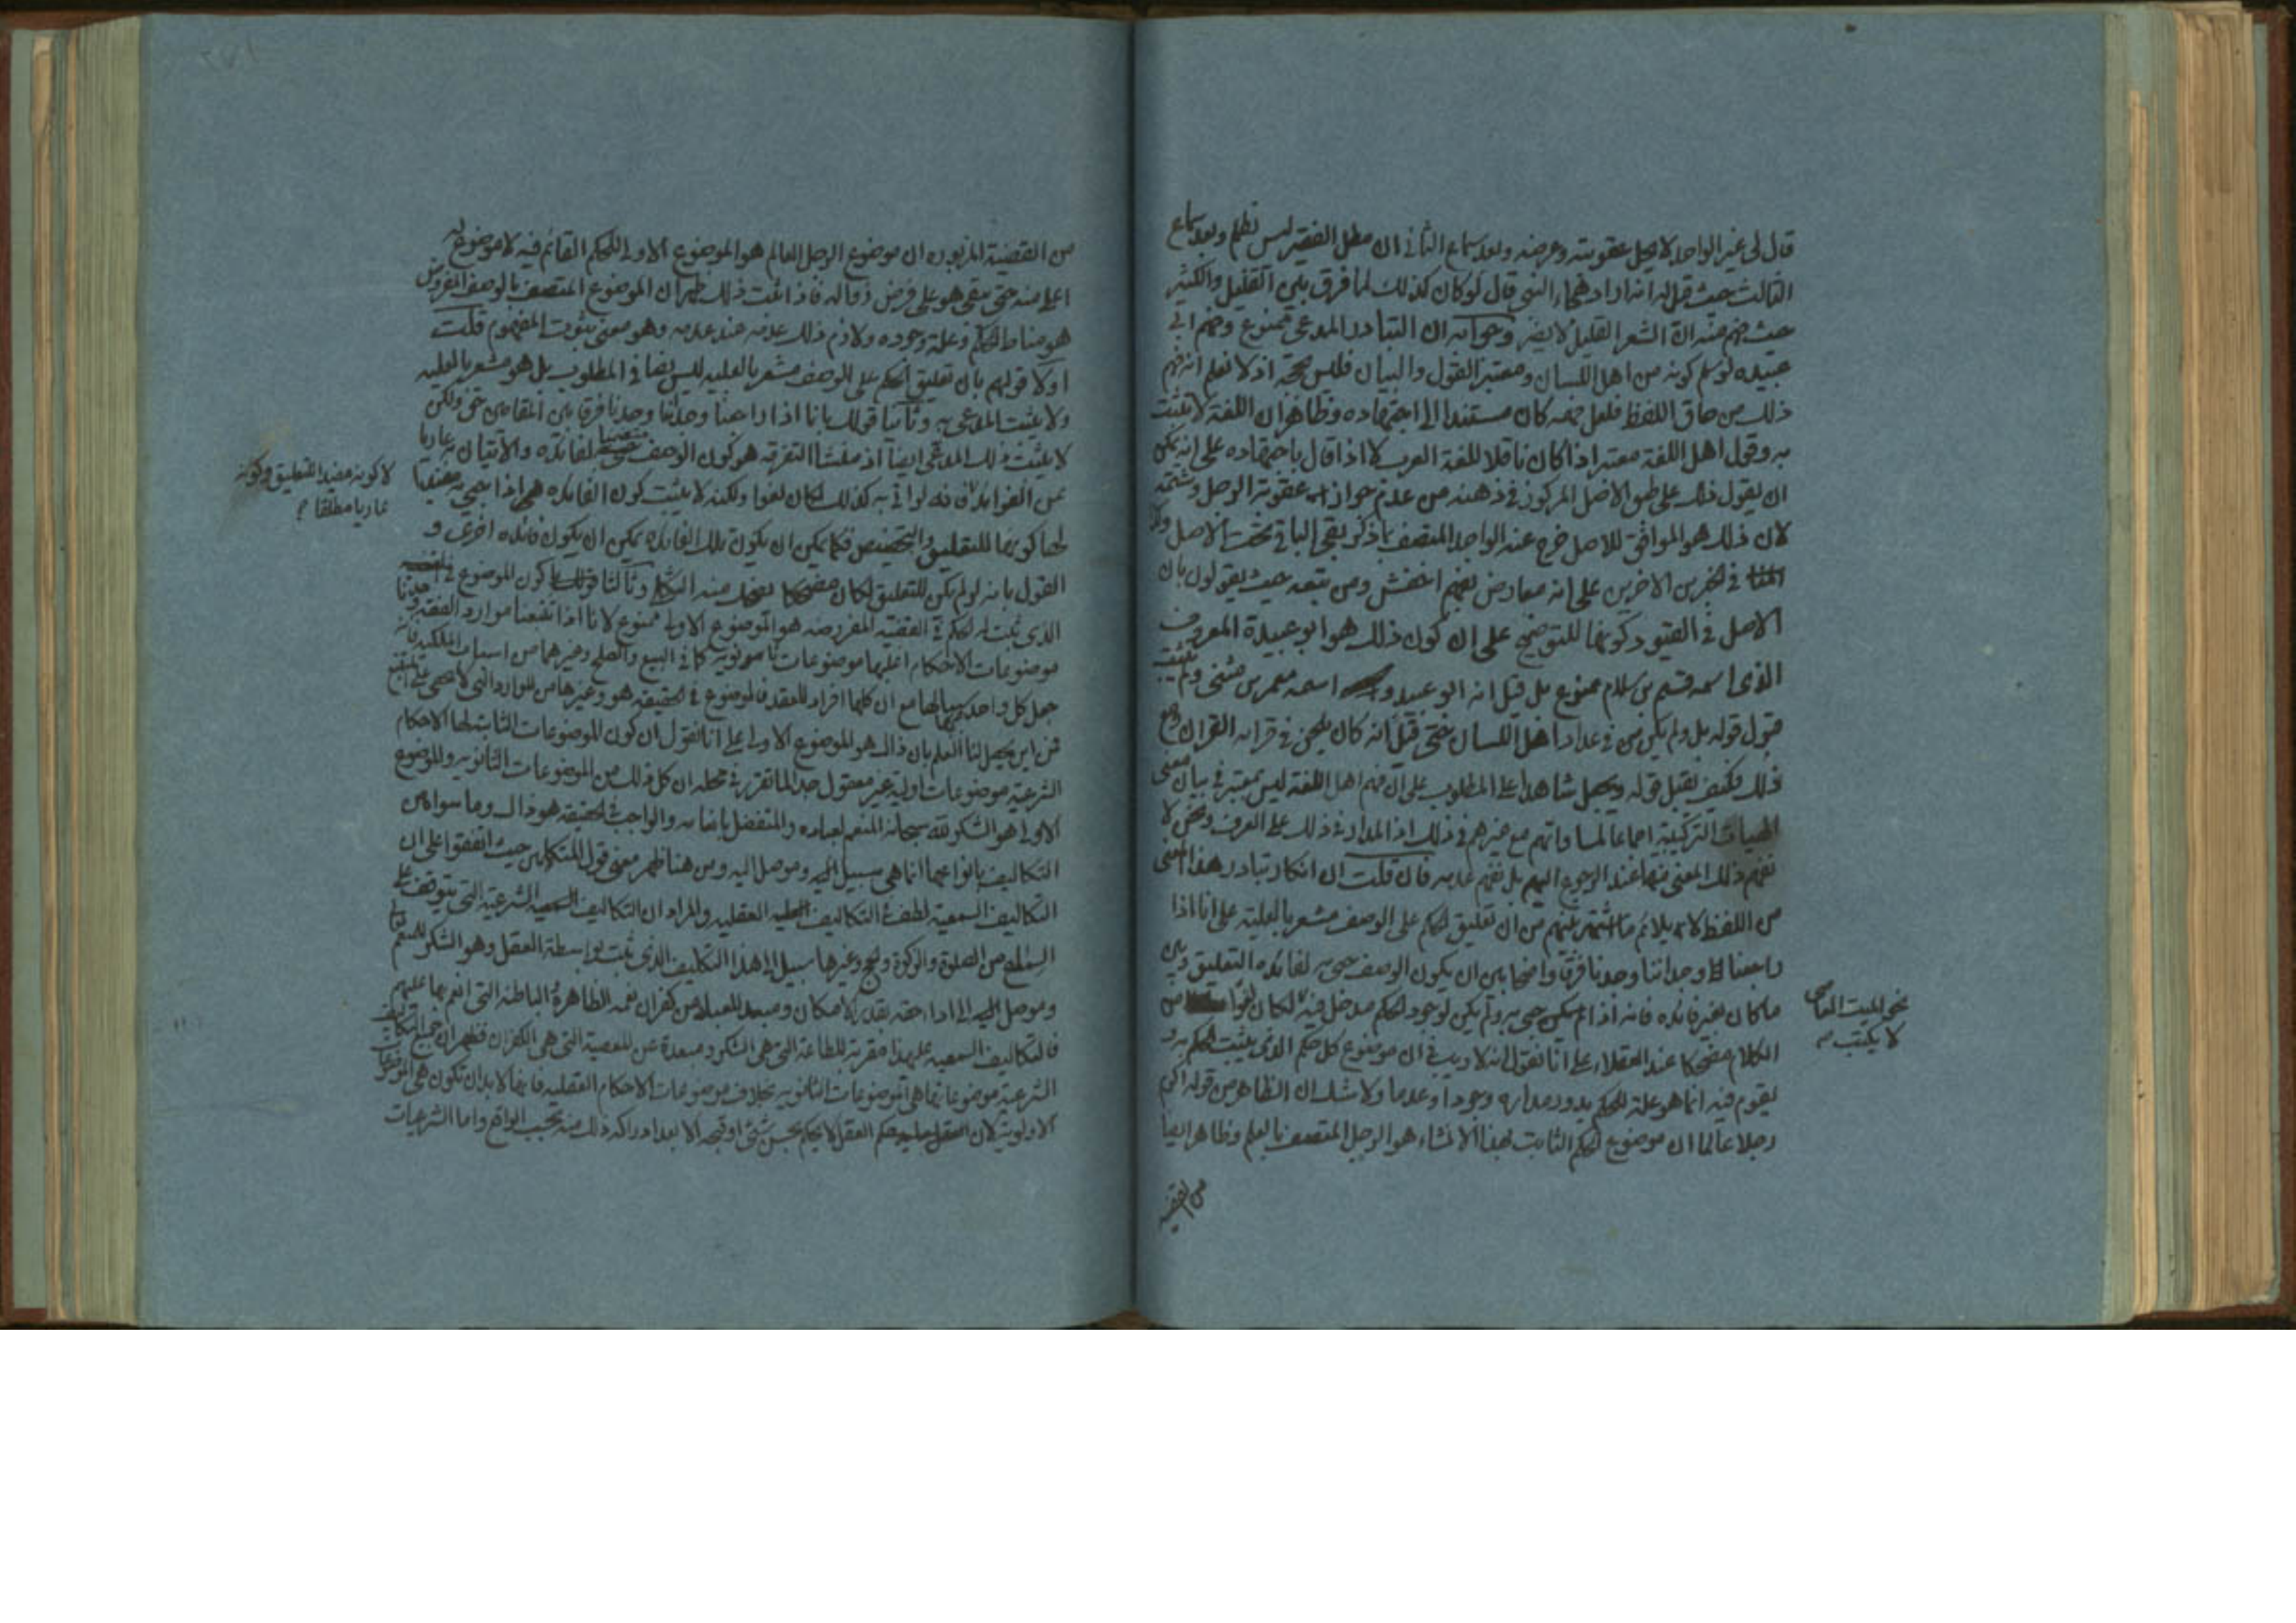 قال لى غير الواجد لا يحل عقوبته وعرضه وبعد سماع الثانى ان مطل الفقير ليس بظلم وبعد سماع
الثالث حيث قيل له انه اراد هجاء النبى قال لو كان كذلك لما فرق بين القليل والكثير
حيث فهم منه ان الشعر القليل لا يضر وجوابه ان التبادر المدعى ممنوع وفهم ابى
عبيده لو سلم كونه من اهل اللسان ومعتبر القول والبيان فليس بحجة اذ لا نعلم انه فهم
ذلك من حاق اللفظ فلعل فهمه كان مستندا الى اجتهاده وظاهر ان اللغة لا تثبت
به وقول اهل اللغة معتبر اذا كان ناقلا للغة العرب لا اذا قال باجتهاده على انه يمكن
ان يقول ذلك على طبق الاصل المركوز فى ذهنه من عدم جواز عقوبة الرجل وشتمه
لان ذلك هو الموافق للاصل خرج عنه الواجد المتصف بما ذكر بقى الباقى تحت الاصل وكذا
فى الخبرين الاخرين على انه معارض بفهم اخفش ومن تبعه حيث يقولون بان
الاصل فى القيود كونها للتوضيح على ان كون ذلك هو ابو عبيدة المعروف
الذى اسمه قسيم بن سلام ممنوع بل قيل انه ابو عبيد و اسمه معمر بن مثنى ولم يثبت
قبول قوله بل ولم يكن من فى عداد اهل اللسان حتى قيل انه كان يلحن فى قرائة القران ومع
ذلك فكيف نقبل قوله ويجعل شاهدا على المطلوب على ان فهم اهل اللغة ليس بمعتبر فى بيان معنى
الهيات التركيبية اجماعا لمساواتهم مع غيرهم فى ذلك اذ المدار فى ذلك على العرف ونحن لا
نفهم ذلك المعنى منها عند الرجوع اليهم بل نفهم عدمه فان قلت ان انكار تبادر هذا المعنى
من اللفظ لا يلائم ما اشتهر عنهم من ان تعليق الحكم على الوصف مشعر بالعلية على انا اذا
راجعنا الى وجداننا وجدنا فرقا واضحا بين ان يكون الوصف جىء به لفائده التعليق وبين
ما كان لغير فائده فانه اذا لم يكن جىء به ولم يكن لوجود الحكم مدخل فيه لكان لغوا من
الكلام مضحكا عند العقلاء على انا نقول انه لا ريب فى ان موضوع كل حكم الذى يثبت الحكم به و
يقوم فيه انما هو علة للحكم يدور مداره وجودا وعدما ولا شك ان الظاهر من قوله اكرم
رجلا عالما ان موضوع الحكم الثابت بهذا الانشاء هو الرجل المتصف بالعلم وظاهر ايضا
من القضيه
نحو الميت العاصى
لا يكتب
من القضية المزبوره ان موضوع الرجل العالم هو الموضوع الاولى للحكم القائم فيه لا موضوع له
اعلى منه حتى يبقى هو على فرض زواله فاذا ثبت ذلك ظهر ان الموضوع المتصف بالوصف المفروض
هو مناط الحكم وعلة وجوده ولازم ذلك عدمه عند عدمه وهو معنى ثبوت المفهوم قلت
اولا قولهم بان تعليق الحكم على الوصف مشعر بالعليه ليس نصا فى المطلوب بل هو مشعر بالعليه
ولا يثبت المدعى به وثانيا قولك بانا اذا راجعنا وجداننا وجدنا فرقا بين المقامين حق ولكن
لا يثبت ذلك المدعى ايضا اذ منشا التفرقه هو كون الوصف متضمنا لفائدة والاتيان به عاريا
عن الفوائد فانه لو اتى به كذلك لكان لغوا ولكنه لا يثبت كون الفايده هى اذا يجىء
لها كونها للتعليق والتخصيص فكما يمكن ان يكون تلك الفايده يمكن ان يكون فائده اخرى و
القول بانه لو لم يكن للتعليق لكان مضحكا يضحك منه الثكلى وثالثا قولك كون الموضوع
الذى يثبت له الحكم فى القضية المفروضه هو الموضوع الاولى ممنوع لانا اذا تتبعنا موارد الفقه وجدنا
موضوعات الاحكام اغلبها موضوعات ثانويه كما فى البيع والصلح وغيرهما من اسباب الملكيه فانه
جعل كل واحد سببا لها مع ان كلها افراد للعقد فالموضوع فى الحقيقه هو وغيرها من الموارد التى لا تحصى على المتتبع
فمن اين يحصل لنا العلم بان ذلك هو الموضوع الاولى على انا نقول ان كون الموضوعات الثابت لها الاحكام
الشرعيه موضوعات اوليه غير معقول جدا لما تقرر فى محله ان كل ذلك من الموضوعات الثانويه والموضوع
الاولى هو الشكر لله سبحانه المنعم لعباده والمتفضل بانعامه والواجب فى الحقيقه هو ذاك وما سواه من
التكاليف بانواعها انما هى سبيل اليه وموصل اليه ومن هنا ظهر معنى قول المتكلمين حيث اتفقوا على ان
التكاليف السمعية لطف فى التكاليف العقليه والمراد ان التكاليف السمعيه الشرعية التى يتوقف على
السمع من الصلوة والزكوة والحج وغيرها سبيل الى هذا التكليف الذى ثبت بواسطة العقل وهو الشكر للمنعم
وموصل اليه الى اداء حقه بقدر الامكان ومبعد للعبد من كفران نعمه الظاهرة الباطنه التى انعم بها عليهم
فالتكاليف السمعيه على هذا مقربة للطاعة التى هى الشكر ومبعدة عن المعصية التى هى الكفران فظهر ان جميع التكاليف
الشرعية موضوعاتها هى الموضوعات الثانويه بخلاف موضوعات الاحكام العقليه فانها لا بد ان تكون هى الموضوعات
الاولوية لان حكم العقل لا يحكم بحسن شىء او قبحه الا بعد ادراكه ذلك منه بحسب الواقع واما الشرعيات
لا كونه مفيدا للتعليق وكونه
عاريا مطلقا